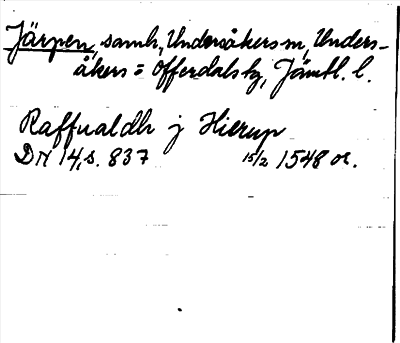 Järpen, samh., Undersåkers sn, Unders-
åkers= Offerdals tg, Jämtl. l.
Raffualdh j Hierup
DN 14, s. 837 15/2 1548 or.